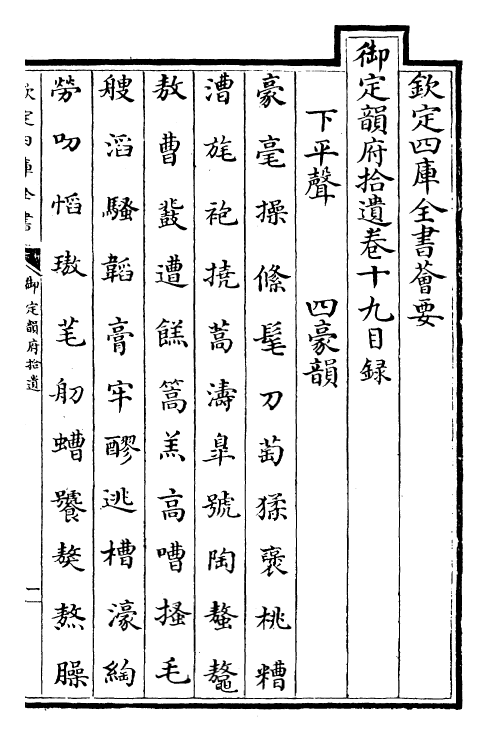 欽定四庫全書薈要
御定韻府拾遺卷十九目録
下平聲 四豪韻
豪毫操絛髦刀萄猱褒桃糟
漕旄袍撓蒿濤皐號陶螯鼇
敖曹鼛遭餻篙羔高嘈搔毛
艘滔騷韜膏牢醪逃槽濠綯
勞叨慆璈芼舠螬饕獒熬臊
欽定四庫全書
御定韻府拾遺
一